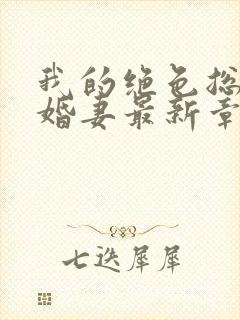 我的绝色总
婚妻最新章
七迭犀犀